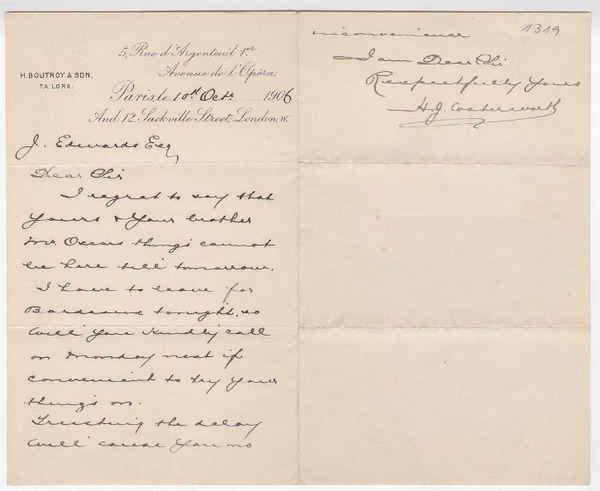 5, Rue d'Argenteuil 1er
Avenue de l'Opéra.
H. BOUTROY & SON,
TAILORS.
Paris le 10th Octr 1906
And 12, Sackville Street, London, W.
J. Edwards Esq
Dear Sir
I regret to say that
yours & your brother
Mr. Oscars things cannot
be here till tomorrow.
I have to leave for
Bordeaux tonight, so
will you kindly call
on Monday next if
convenient to try your
things on.
Trusting the delay
will cause you no
1319
inconvenience
I am Dear Sir
Respectfully yours
H. J.